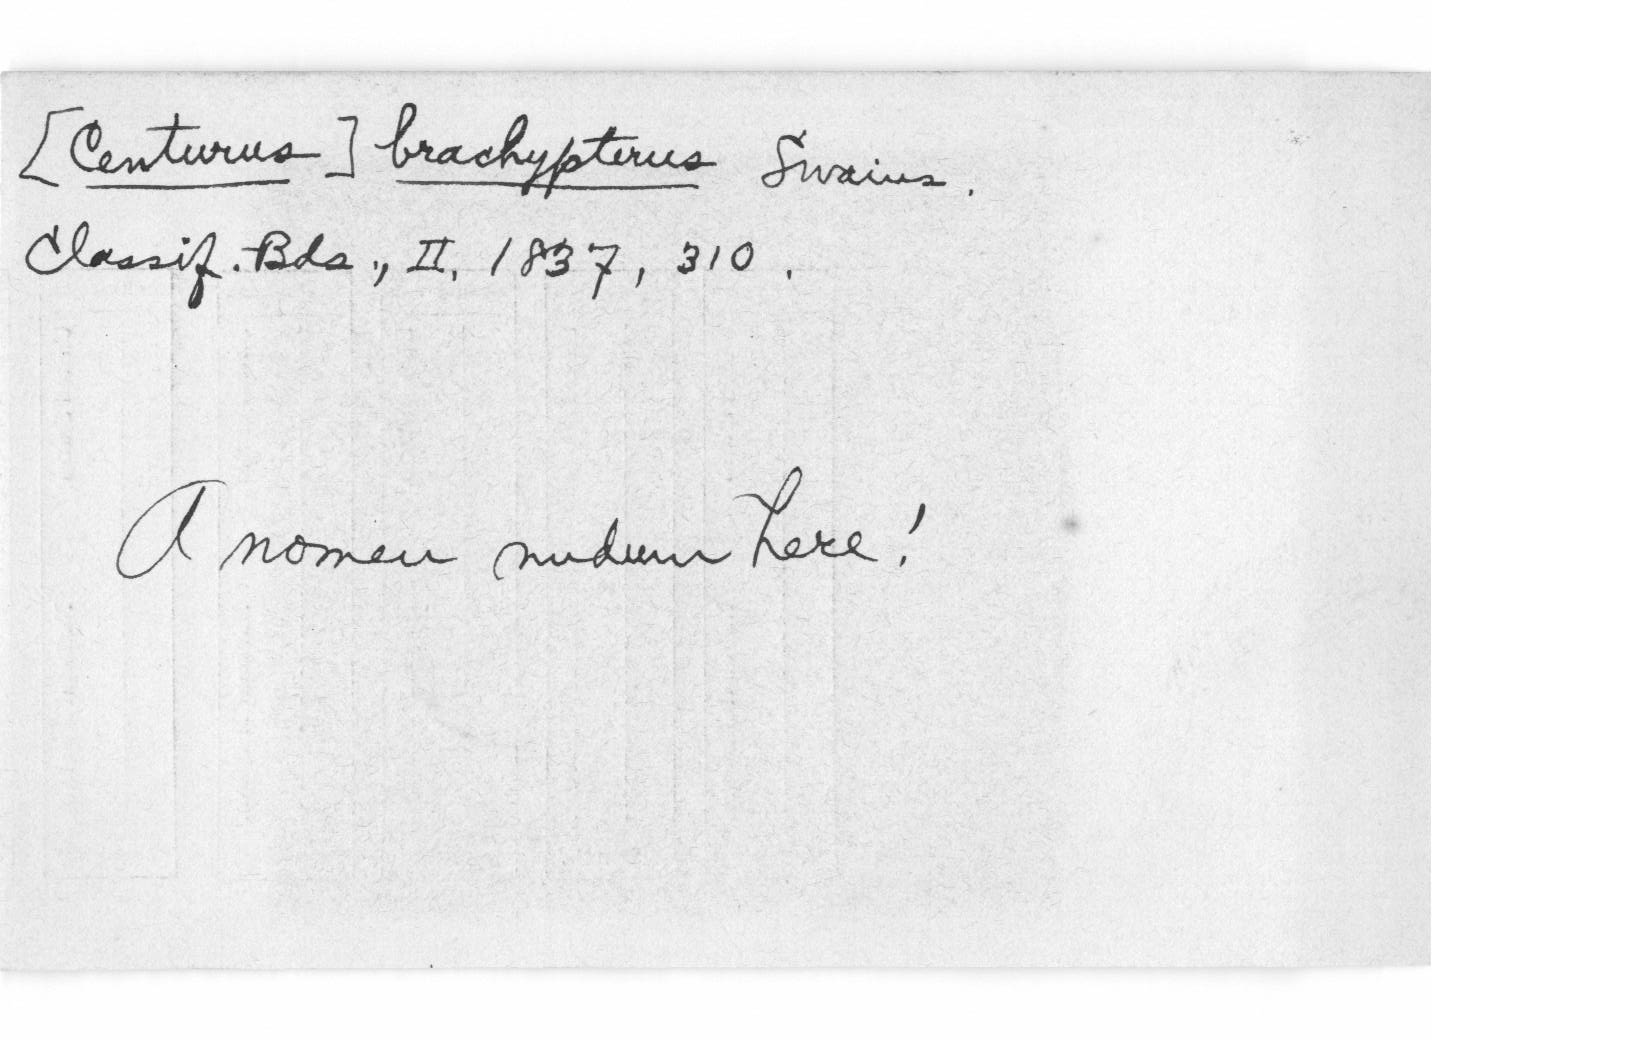 [Centurus] brachypterus Swains.
Classif. Bds., II, 1837, 310.
A nomen nudum here!